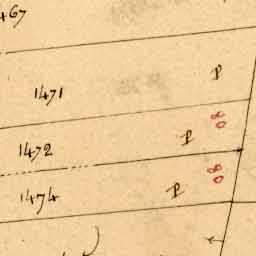 467
1471 P
80
1472 P
80
1474 P